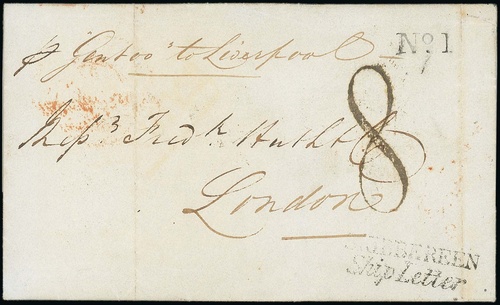 p. Gentoo to Liverpool
No. 1
Messrs Fredk Huth & Co
8
London
SKIBBEREEN
Ship Letter